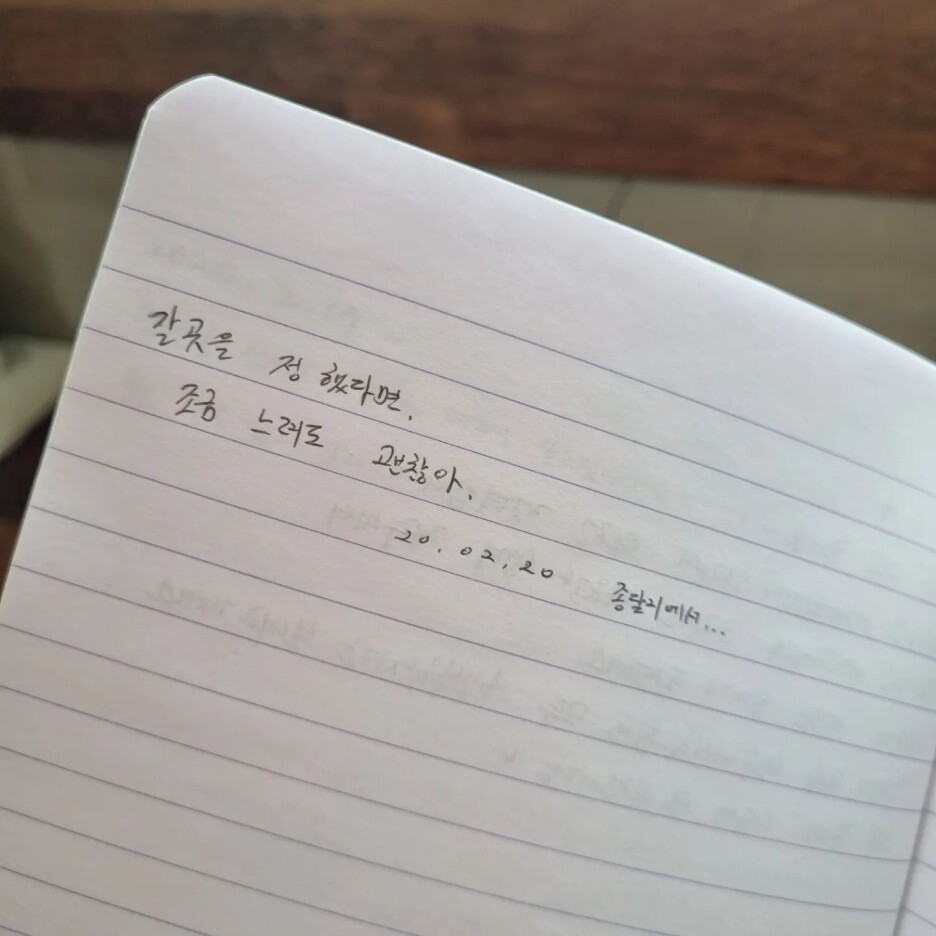 갈곳을 정 했다면.
조금 느려도 괜찮아.
20.02.20 종달리에서...